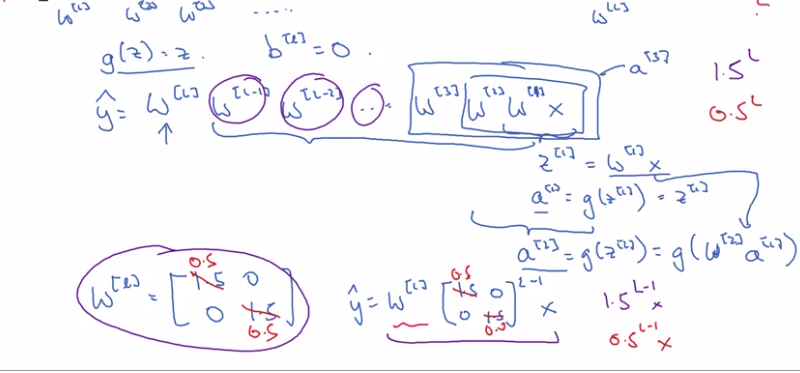 w^[1] w^[2] w^[3] ..... w^[L]
g(z) = z. b^[l] = 0.
ŷ = w^[L] w^[L-1] w^[L-2] ... w^[3] w^[2] w^[1] x a^[3] 1.5^L
0.5^L
z^[1] = w^[1] x
a^[1] = g(z^[1]) = z^[1]
a^[2] = g(z^[2]) = g(w^[2] a^[1])
w^[l] = [1.5 0.5 0
0 1.5 0.5]
ŷ = w^[L] [1.5 0.5 0
0 1.5 0.5]^L-1 x
1.5^L-1 x
0.5^L-1 x